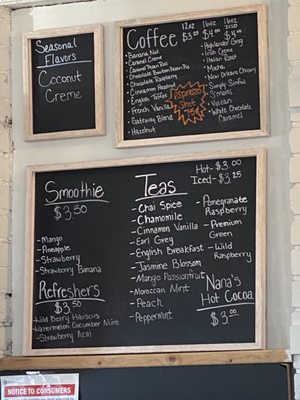 Seasonal
Flavors
Coconut
Creme
Coffee
12oz 16oz 16oz
$3 $4 $4
Banana Nut
Caramel Creme
Caramel Pecan Roll
Chocolate Bourbon Pecan Pie
Chocolate Raspberry
Cinnamon Hazelnut
English Toffee
French Vanilla
Gateway Blend
Hazelnut
Highlander Grog
Irish Creme
Italian Roast
Mocha
New Orleans Chicory
Simply Sinful
S'mores
Vulcan
White Chocolate
Caramel
Espresso
Shot
75¢
Smoothie
$3.50
-Mango
-Pineapple
-Strawberry
-Strawberry Banana
Refreshers
$3.50
Wild Berry Hibiscus
Watermelon Cucumber Mint
Strawberry Acai
Teas
Hot- $3.00
Iced- $3.15
-Chai Spice
-Chamomile
-Cinnamon Vanilla
-Earl Grey
-English Breakfast
-Jasmine Blossom
-Mango Passionfruit
-Moroccan Mint
-Peach
-Peppermint
-Pomegranate
Raspberry
-Premium
Green
-Wild
Raspberry
Nana's
Hot Cocoa
$3.00
NOTICE TO CONSUMERS